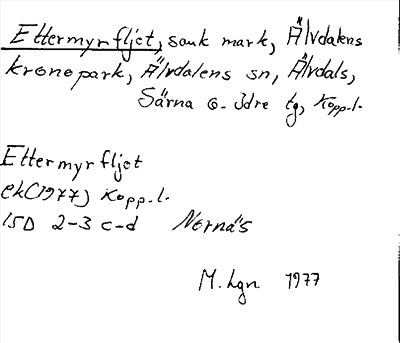 Ettermyrfljot, sank mark, Älvdalens
kronopark, Älvdalens sn, Älvdals,
Särna o. Idre tg, Kopp.l.
Ettermyrfljot
ek(1977) Kopp.l.
15D 2-3 c-d Nornäs
M. Lgn 1977